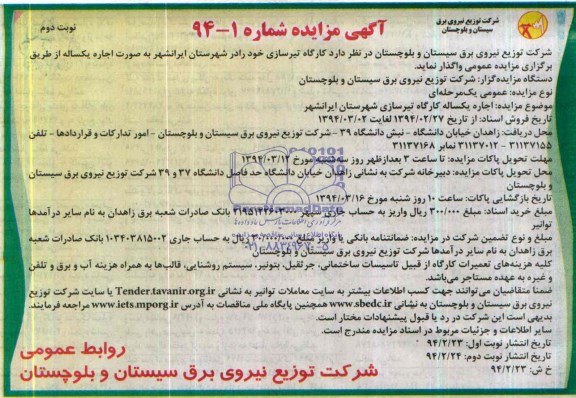 شرکت توزیع نیروی برق
سیستان و بلوچستان
آگهی مزایده شماره ۱-۹۴
نوبت دوم
شرکت توزیع نیروی برق سیستان و بلوچستان در نظر دارد کارگاه تیرسازی خود رادر شهرستان ایرانشهر به صورت اجاره یکساله از طریق
برگزاری مزایده عمومی واگذار نماید.
دستگاه مزایده‌گزار: شرکت توزیع نیروی برق سیستان و بلوچستان
نوع مزایده: عمومی یک‌مرحله‌ای
موضوع مزایده: اجاره یکساله کارگاه تیرسازی شهرستان ایرانشهر
تاریخ فروش اسناد: از تاریخ ۱۳۹۴/۰۲/۲۷ لغایت ۱۳۹۴/۰۳/۰۲
محل دریافت: زاهدان خیابان دانشگاه - نبش دانشگاه ۳۹ - شرکت توزیع نیروی برق سیستان و بلوچستان - امور تدارکات و قراردادها - تلفن
۳۱۱۳۷۱۵۵ - ۳۱۱۳۷۰۱۲ نمابر ۳۱۱۳۷۱۶۸
مهلت تحویل پاکات مزایده: تا ساعت ۳ بعدازظهر روز سه شنبه مورخ ۱۳۹۴/۰۳/۱۲
محل تحویل پاکات مزایده: دبیرخانه شرکت به نشانی زاهدان خیابان دانشگاه حد فاصل دانشگاه ۳۷ و ۳۹ شرکت توزیع نیروی برق سیستان
و بلوچستان
تاریخ بازگشایی پاکات: ساعت ۱۰ روز شنبه مورخ ۱۳۹۴/۰۳/۱۶
مبلغ خرید اسناد: مبلغ ۳۰۰/۰۰۰ ریال واریز به حساب جاری سپهر بانک صادرات شعبه برق زاهدان به نام سایر درآمدها
توانیر
مبلغ و نوع تضمین شرکت در مزایده: ضمانتنامه بانکی یا واریز مبلغ ریال به حساب جاری ۱۰۳۴۰۳۸۱۵۰۰۲ بانک صادرات شعبه
برق زاهدان به نام سایر درآمدها شرکت توزیع نیروی برق سیستان و بلوچستان
کلیه هزینه‌های تعمیرات کارگاه از قبیل تاسیسات ساختمانی، جرثقیل، بتونیر، سیستم روشنایی، قالب‌ها به همراه هزینه آب و برق و تلفن
و غیره به عهده مستاجر می‌باشد.
ضمنا متقاضیان می‌توانند جهت کسب اطلاعات بیشتر به سایت معاملات توانیر به نشانی Tender.tavanir.org.ir یا سایت شرکت توزیع
نیروی برق سیستان و بلوچستان به نشانی www.sbedc.ir همچنین پایگاه ملی مناقصات به آدرس www.iets.mporg.ir مراجعه فرمایند.
بدیهی است این شرکت در رد یا قبول پیشنهادات مختار است.
سایر اطلاعات و جزئیات مربوط در اسناد مزایده مندرج است.
تاریخ انتشار نوبت اول: ۹۴/۲/۲۳
تاریخ انتشار نوبت دوم: ۹۴/۲/۲۴
خ ش: ۹۴/۲/۲۳
روابط عمومی
شرکت توزیع نیروی برق سیستان و بلوچستان